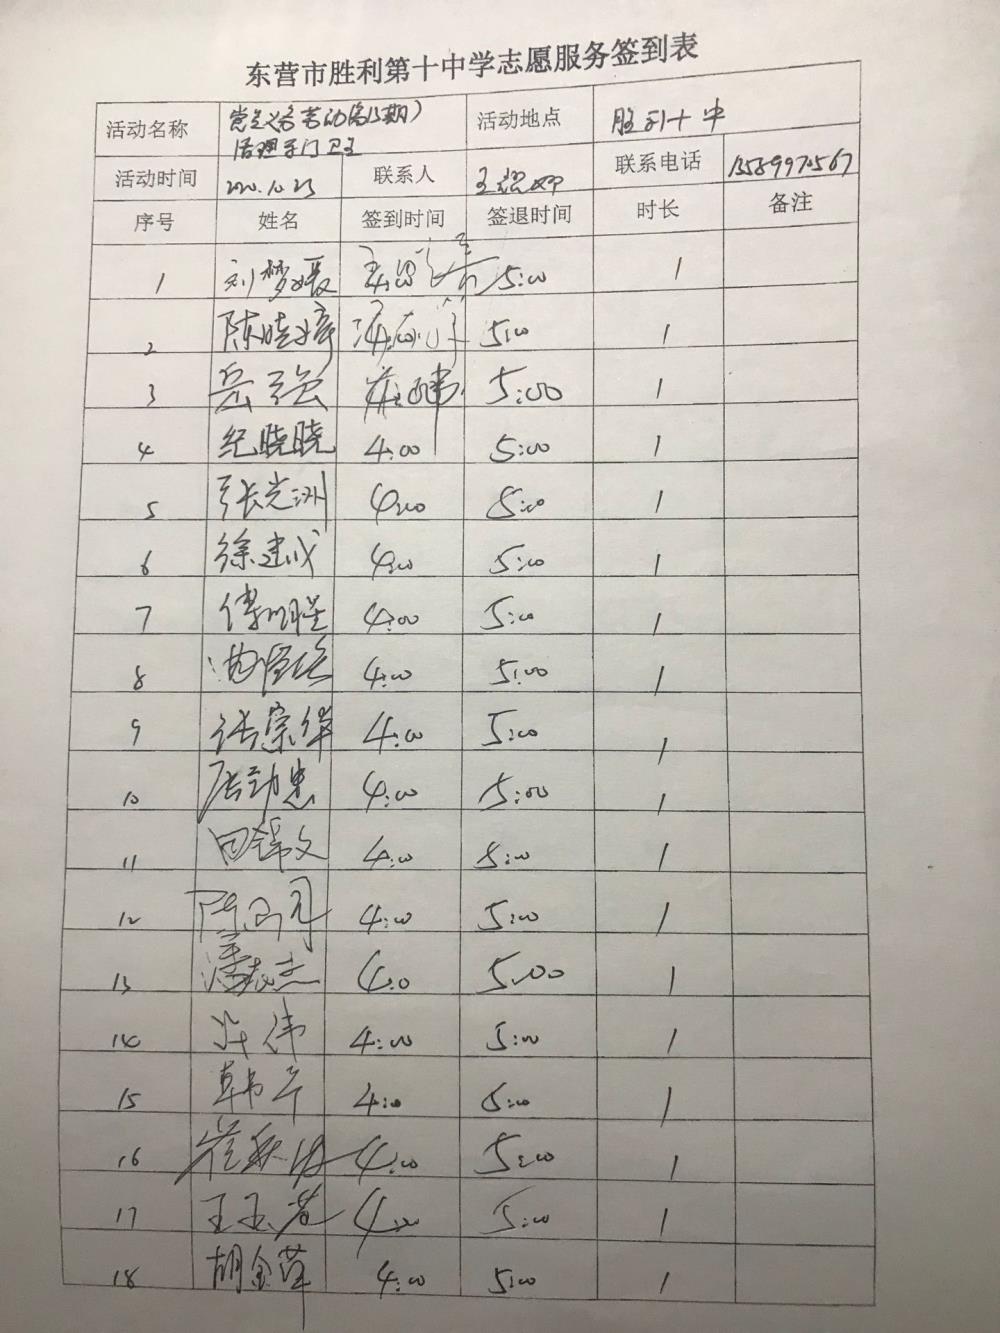 东营市胜利第十中学志愿服务签到表
活动名称 党员义务劳动(第15期) 活动地点 胜利十中
清理学门卫生
活动时间 2020.10.23 联系人 联系电话 13589970567
序号 姓名 签到时间 签退时间 时长 备注
1 刘梦媛 5:00 1
2 陈晓婷 4:00 5:00 1
3 岳强 5:00 1
4 纪晓晓 4:00 5:00 1
5 张光洲 4:00 5:00 1
6 徐建成 4:00 5:00 1
7 4:00 5:00 1
8 4:00 5:00 1
9 张宗伟 4:00 5:00 1
10 4:00 5:00 1
11 田锦文 4:00 5:00 1
12 4:00 5:00 1
13 潘志杰 4:0 5:00 1
14 许伟 4:00 5:00 1
15 韩宁 4:00 5:00 1
16 4:00 5:00 1
17 王玉芳 4:00 5:00 1
18 胡金萍 4:00 5:00 1